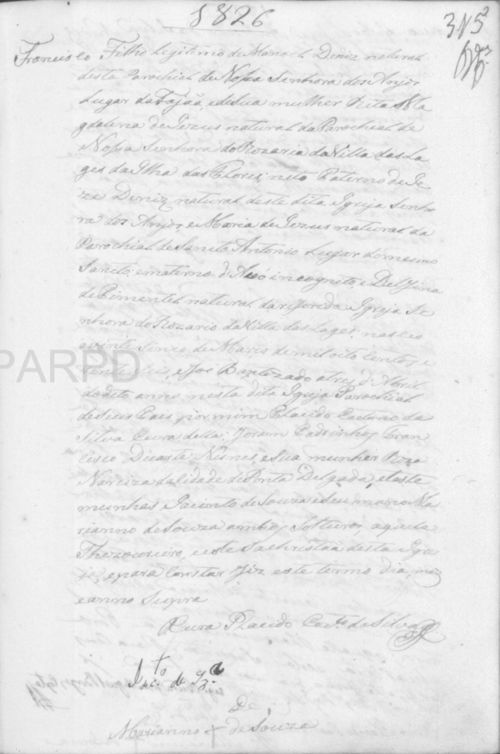 1826
315
Francisco Filho legitimo de Manoel Deniz natural
desta Parochial de Nossa Senhora dos Anjos
Lugar da Fajãa, e de sua mulher Rita Ma
gdalena de Jezus natural da Parochial de
Nossa Senhora do Rozario da Villa das La
ges da Ilha das Flores; neto Paterno de Jo
ze Deniz natural desta dita Igreja Senho
ra dos Anjos, e Maria de Jezus natural da
Parochial de Santo Antonio Lugar do mesmo
Santo; e materno d'Avó incognito e Delfina
de Pimentel natural da referida Igreja Se
nhora do Rozario da Villa das Lages, nasceo
a vinte sinco de Março de mil oito centos e
vinte seis, e foi Baptizado a tres d'Abril
do dito anno nesta dita Igreja Parochial
de seus Pais por mim Placido Caetano da
Silva Cura della; foram Padrinhos Fran
cisco Duarte Nunes, e sua mulher Roza
Narciza da Cidade de Ponta Delgada, e teste
munhas Jacinto de Souza e seu mano Ma
rianno de Souza ambos solteiros, aquele
Thezoureiro, e este Sachristão desta Igre
ja, e para constar fiz este termo dia, mez
e anno supra
Cura Placido Caet.o da Silva
PARPD
De
Marianno + de Souza